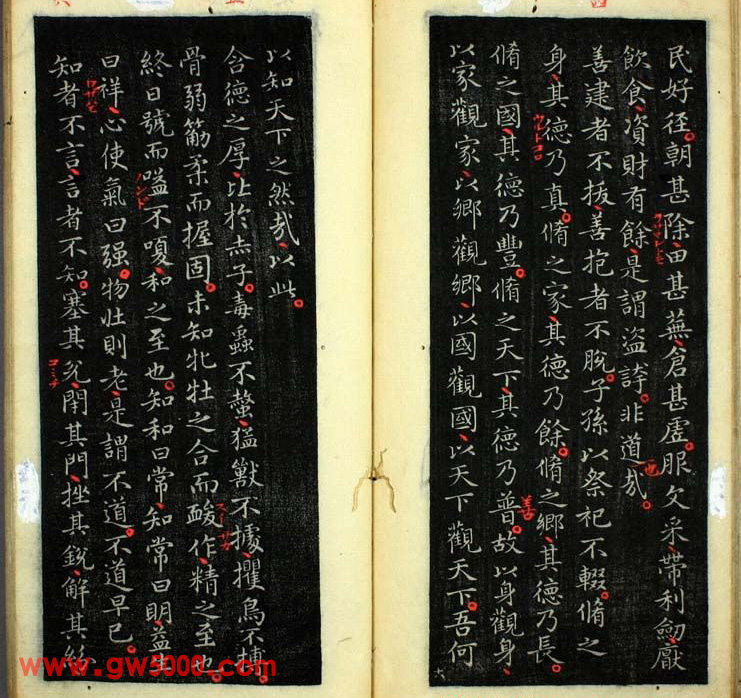 民好径朝甚除田甚蕪倉甚虗服文采帶利劒厭
飲食資財有餘是謂盜誇非道哉
善建者不拔善抱者不脫子孫以祭祀不輟脩之
身其德乃真脩之家其德乃餘脩之鄉其德乃長
脩之國其德乃豐脩之天下其德乃普故以身觀身
以家觀家以鄉觀鄉以國觀國以天下觀天下吾何
以知天下之然哉以此
含德之厚比於赤子毒蟲不螫猛獸不據攫鳥不搏
骨弱筋柔而握固未知牝牡之合而酸作精之至也
終日號而嗌不嗄和之至也知和曰常知常曰明益生
曰祥心使氣曰强物壯則老是謂不道不道早已
知者不言言者不知塞其兊閇其門挫其銳解其紛
也
善
www.gw5000.com